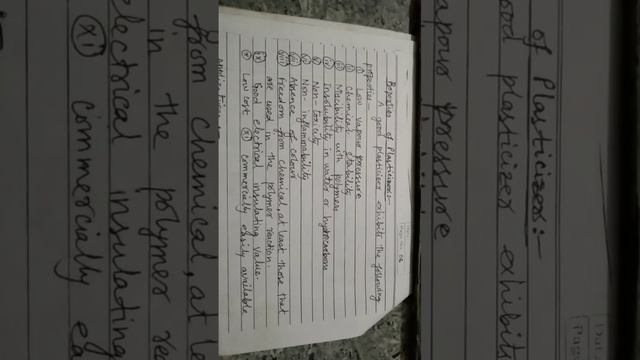 Properties of Plasticizers:-
A good plasticizer exhibits the following
properties-
(i) Low vapour pressure
(ii) Chemical stability
(iii) Miscibility with polymers
(iv) Insolubility in water or hydrocarbons
(v) Non-toxicity
(vi) Non-inflammability
(vii) Absence of colour
(viii) Freedom from chemical, at least those that
are used in the polymer reaction.
(ix) Good electrical insulating value.
(x) Low cost (xi) commercially easily available
of Plasticizers:-
ood plasticizer exhibit
apour pressure
from chemical, at le
in the polymer rea
electrical insulating
(xi) commercially ea